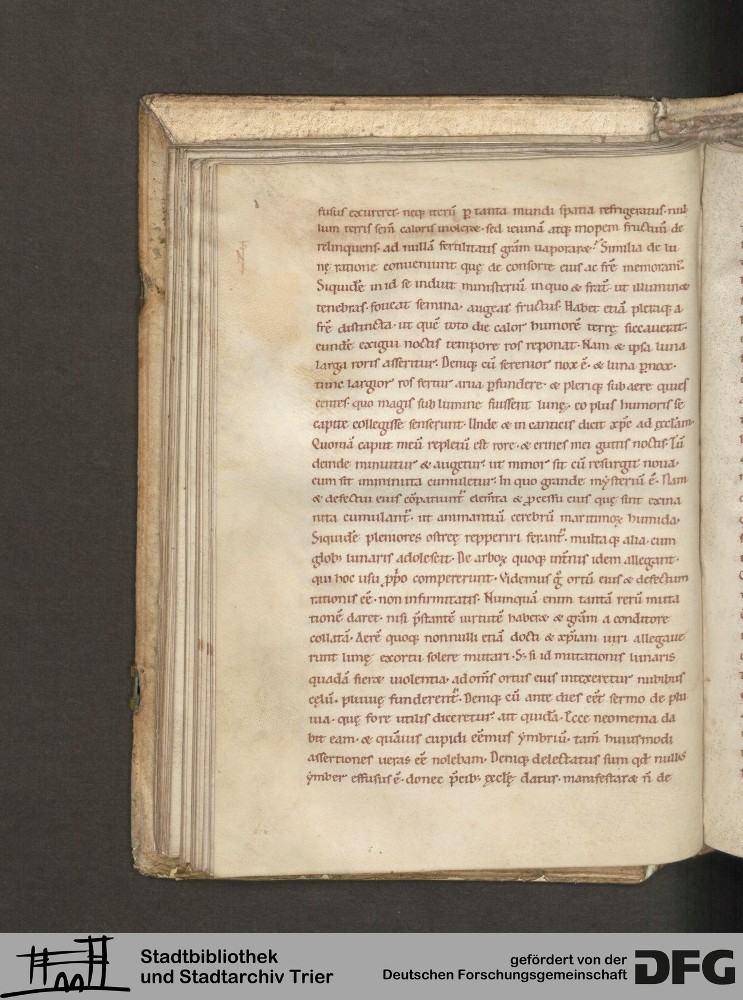 fusus excureret· neq; iterū ꝑ tanta mundi spatia refrigeratus· nul
lum terris semī caloris inolere· sed ieiunā atq; inopem fructuū de
relinquens· ad nullā fertilitatis grām uaporaret. Similia de lu
nę ratione conueniunt quę de consorte eius ac frē memoram̄.
Siquidē in id se induit ministeriū in quo & frat̄· ut illuminet
tenebras· foueat semina· augeat fructus. Habet etiā pleraq; a
frē distincta· ut quē toto die calor humorē terrę siccauerat·
eundē exigui noctis tempore ros reponat· Nam & ipsa luna
larga roris asseritur. Deniq; cū serenior nox ē· & luna ꝑnox·
tunc largior ros fertur arua ꝑfundere· & pleriq; sub aere quies
centes· quo magis sub lumine fuissent lunę· eo plus humoris se
capite collegisse senserunt· Unde & in canticis dicit xp̄c ad ęccłam·
Quoniā caput meū repletū est rore· & crines mei guttis noctis· Tū
deinde minuitur & augetur· ut minor sit cū resurgit noua·
cum sit imminuta cumuletur· In quo grande mẏsteriū ē· Nam
& defectui eius cōpatiunt̄ elem̄ta & ꝓcessu eius quę sint exina
nita cumulant̄· ut animantiū cerebrū maritimoꝝ humida·
Siquidē pleniores ostreę repperiri ferant̄· multaq; alia· cum
glob; lunaris adolescit· De arboꝝ quoq; int̄nis idem allegant·
qui hoc usu ꝓp̄o compererunt· Videmus g̊ ortū eius & defectum
rationis eē· non infirmitatis· Numquā enim tantā rerū muta
tionē daret· nisi p̄stantē uirtutē haberet & grām a conditore
collatā· Aerē quoq; nonnulli etiā docti & xp̄iani uiri allegaue
runt lunę exortu solere mutari· S; si id mutationis lunaris
quadā fieret uiolentia· ad om̄s ortus eius intexeretur nubibus
cęlū· pluuię funderent̄· Deniq; cū ante dies eēt sermo de plu
uia· quę fore utilis diceretur· ait quidā· Ecce neomenia da
bit eam· & quāuis cupidi eēmus ẏmbriū· tam̄ huiusmodi
assertiones ueras eē nolebam· Deniq; delectatus sum qd̄ nullus
ẏmber effusus ē· donec p̄cib; ęcclę datus· manifestaret n̄ de
Stadtbibliothek
und Stadtarchiv Trier
gefördert von der
Deutschen Forschungsgemeinschaft
DFG